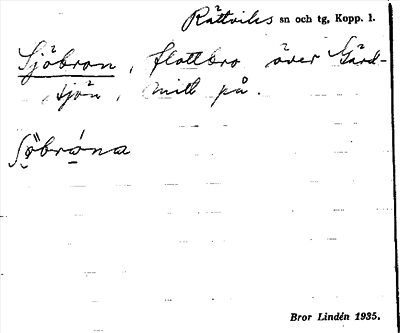 Rättviks sn och tg, Kopp. l.
Sjöbron, flottbro över Gärd-
sjön, mitt på.
Söbróna
Bror Lindén 1935.